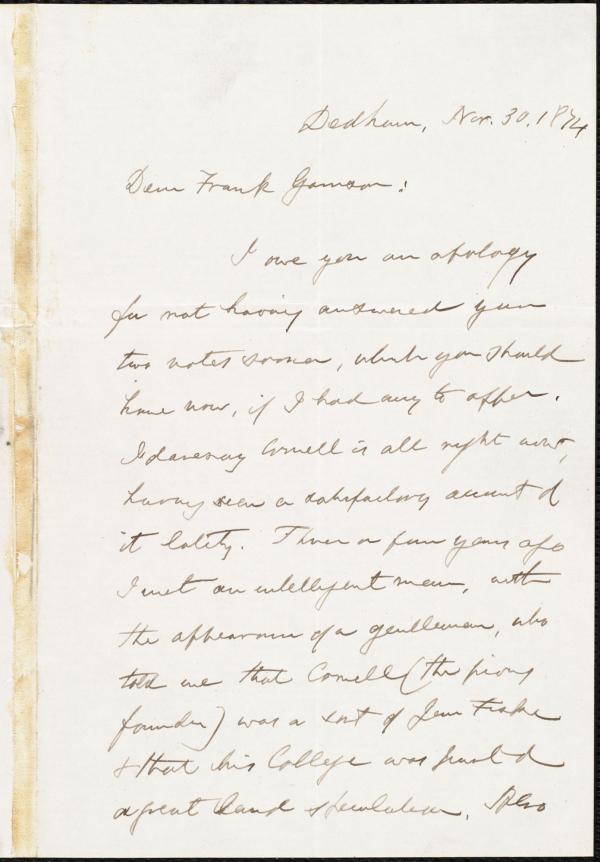 Dedham, Nov. 30. 1874
Dear Frank Garrison:
I owe you an apology
for not having answered your
two notes sooner, which you should
have now, if I had any to offer.
I daresay Cornell is all right now,
having seen a satisfactory account of
it lately. Three or four years ago
I met an intelligent man, with
the appearance of a gentleman, who
told me that Cornell (the pious
founder) was a sort of Jem Fiske
& that his College was part of
a great land speculation. Also